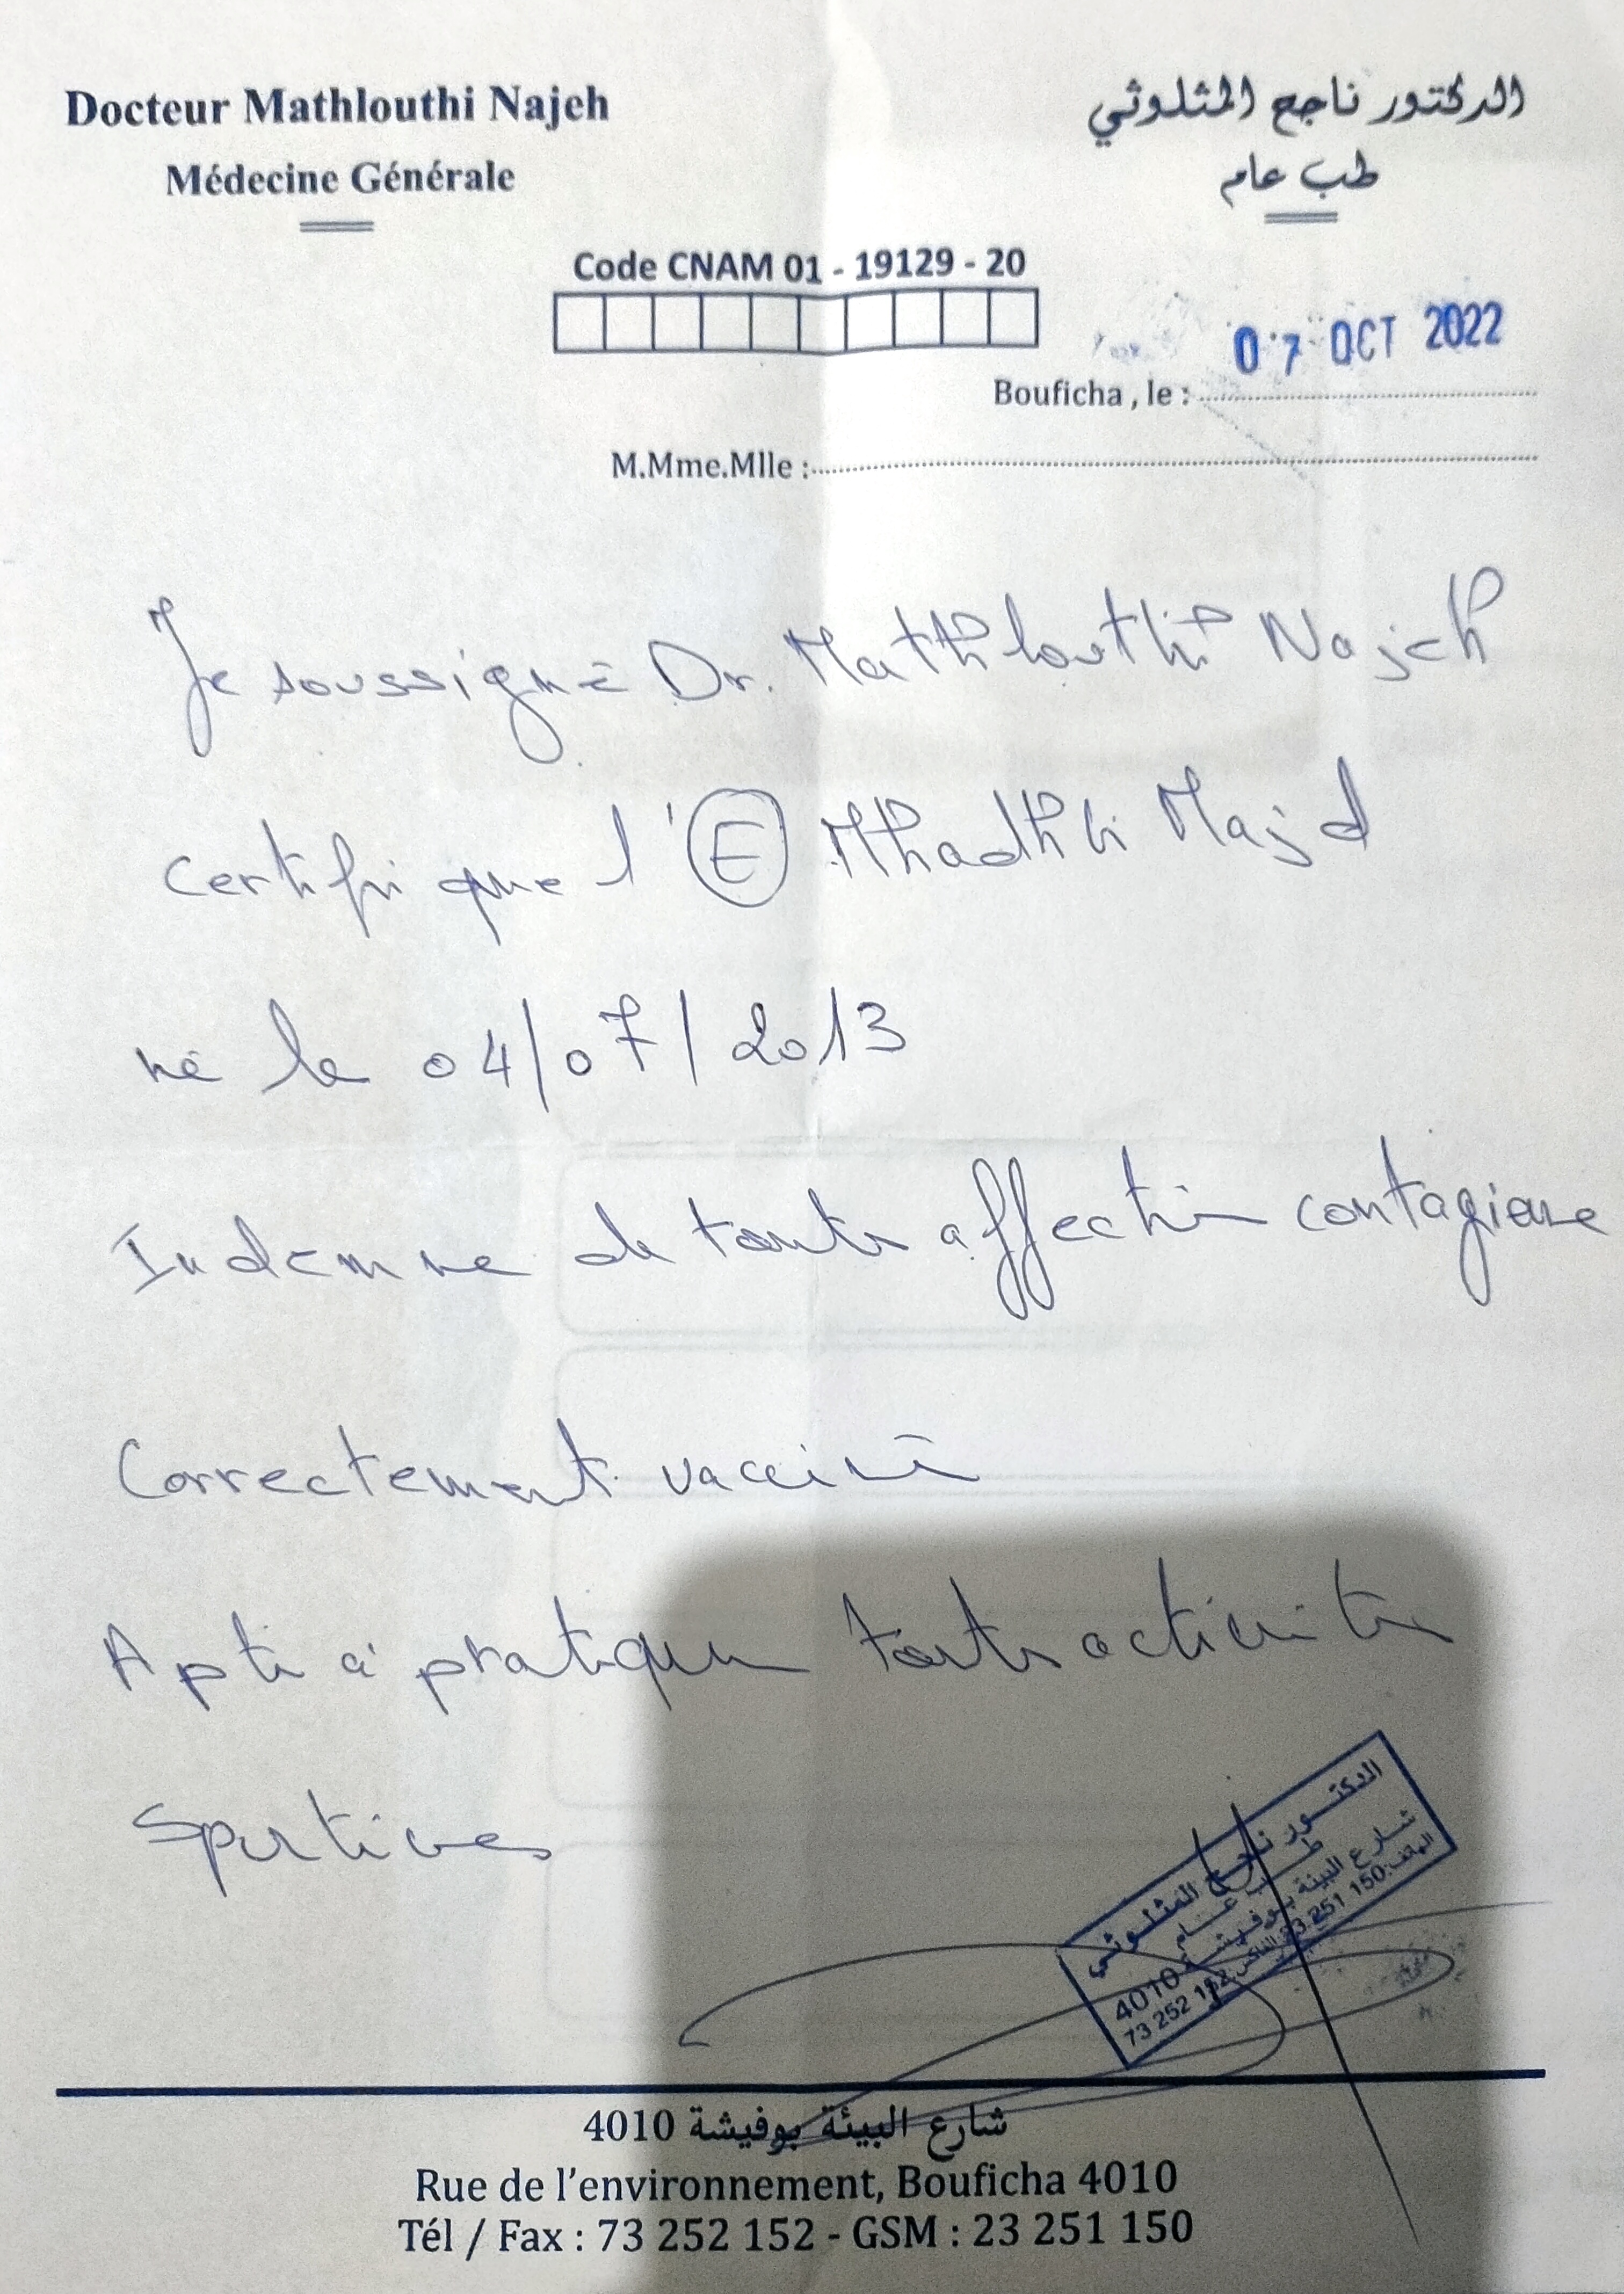 Docteur Mathlouthi Najeh
Médecine Générale
الدكتور ناجح المثلوثي
طب عام
Code CNAM 01 - 19129 - 20
07 OCT 2022
Bouficha , le :
M.Mme.Mlle :
Je soussigné Dr. Mathlouthi Najeh
certifie que l'Ⓔ Mhadhbi Majd
né le 04/07/2013
Indemne de toute affection contagieuse
Correctement vacciné
Apte à pratiquer toute activités
Sportives
الدكتور ناجح المثلوثي
طب عام
شارع البيئة بوفيشة 4010
الهاتف: 23 251 150 الفاكس: 73 252 152
شارع البيئة بوفيشة 4010
Rue de l'environnement, Bouficha 4010
Tél / Fax : 73 252 152 - GSM : 23 251 150